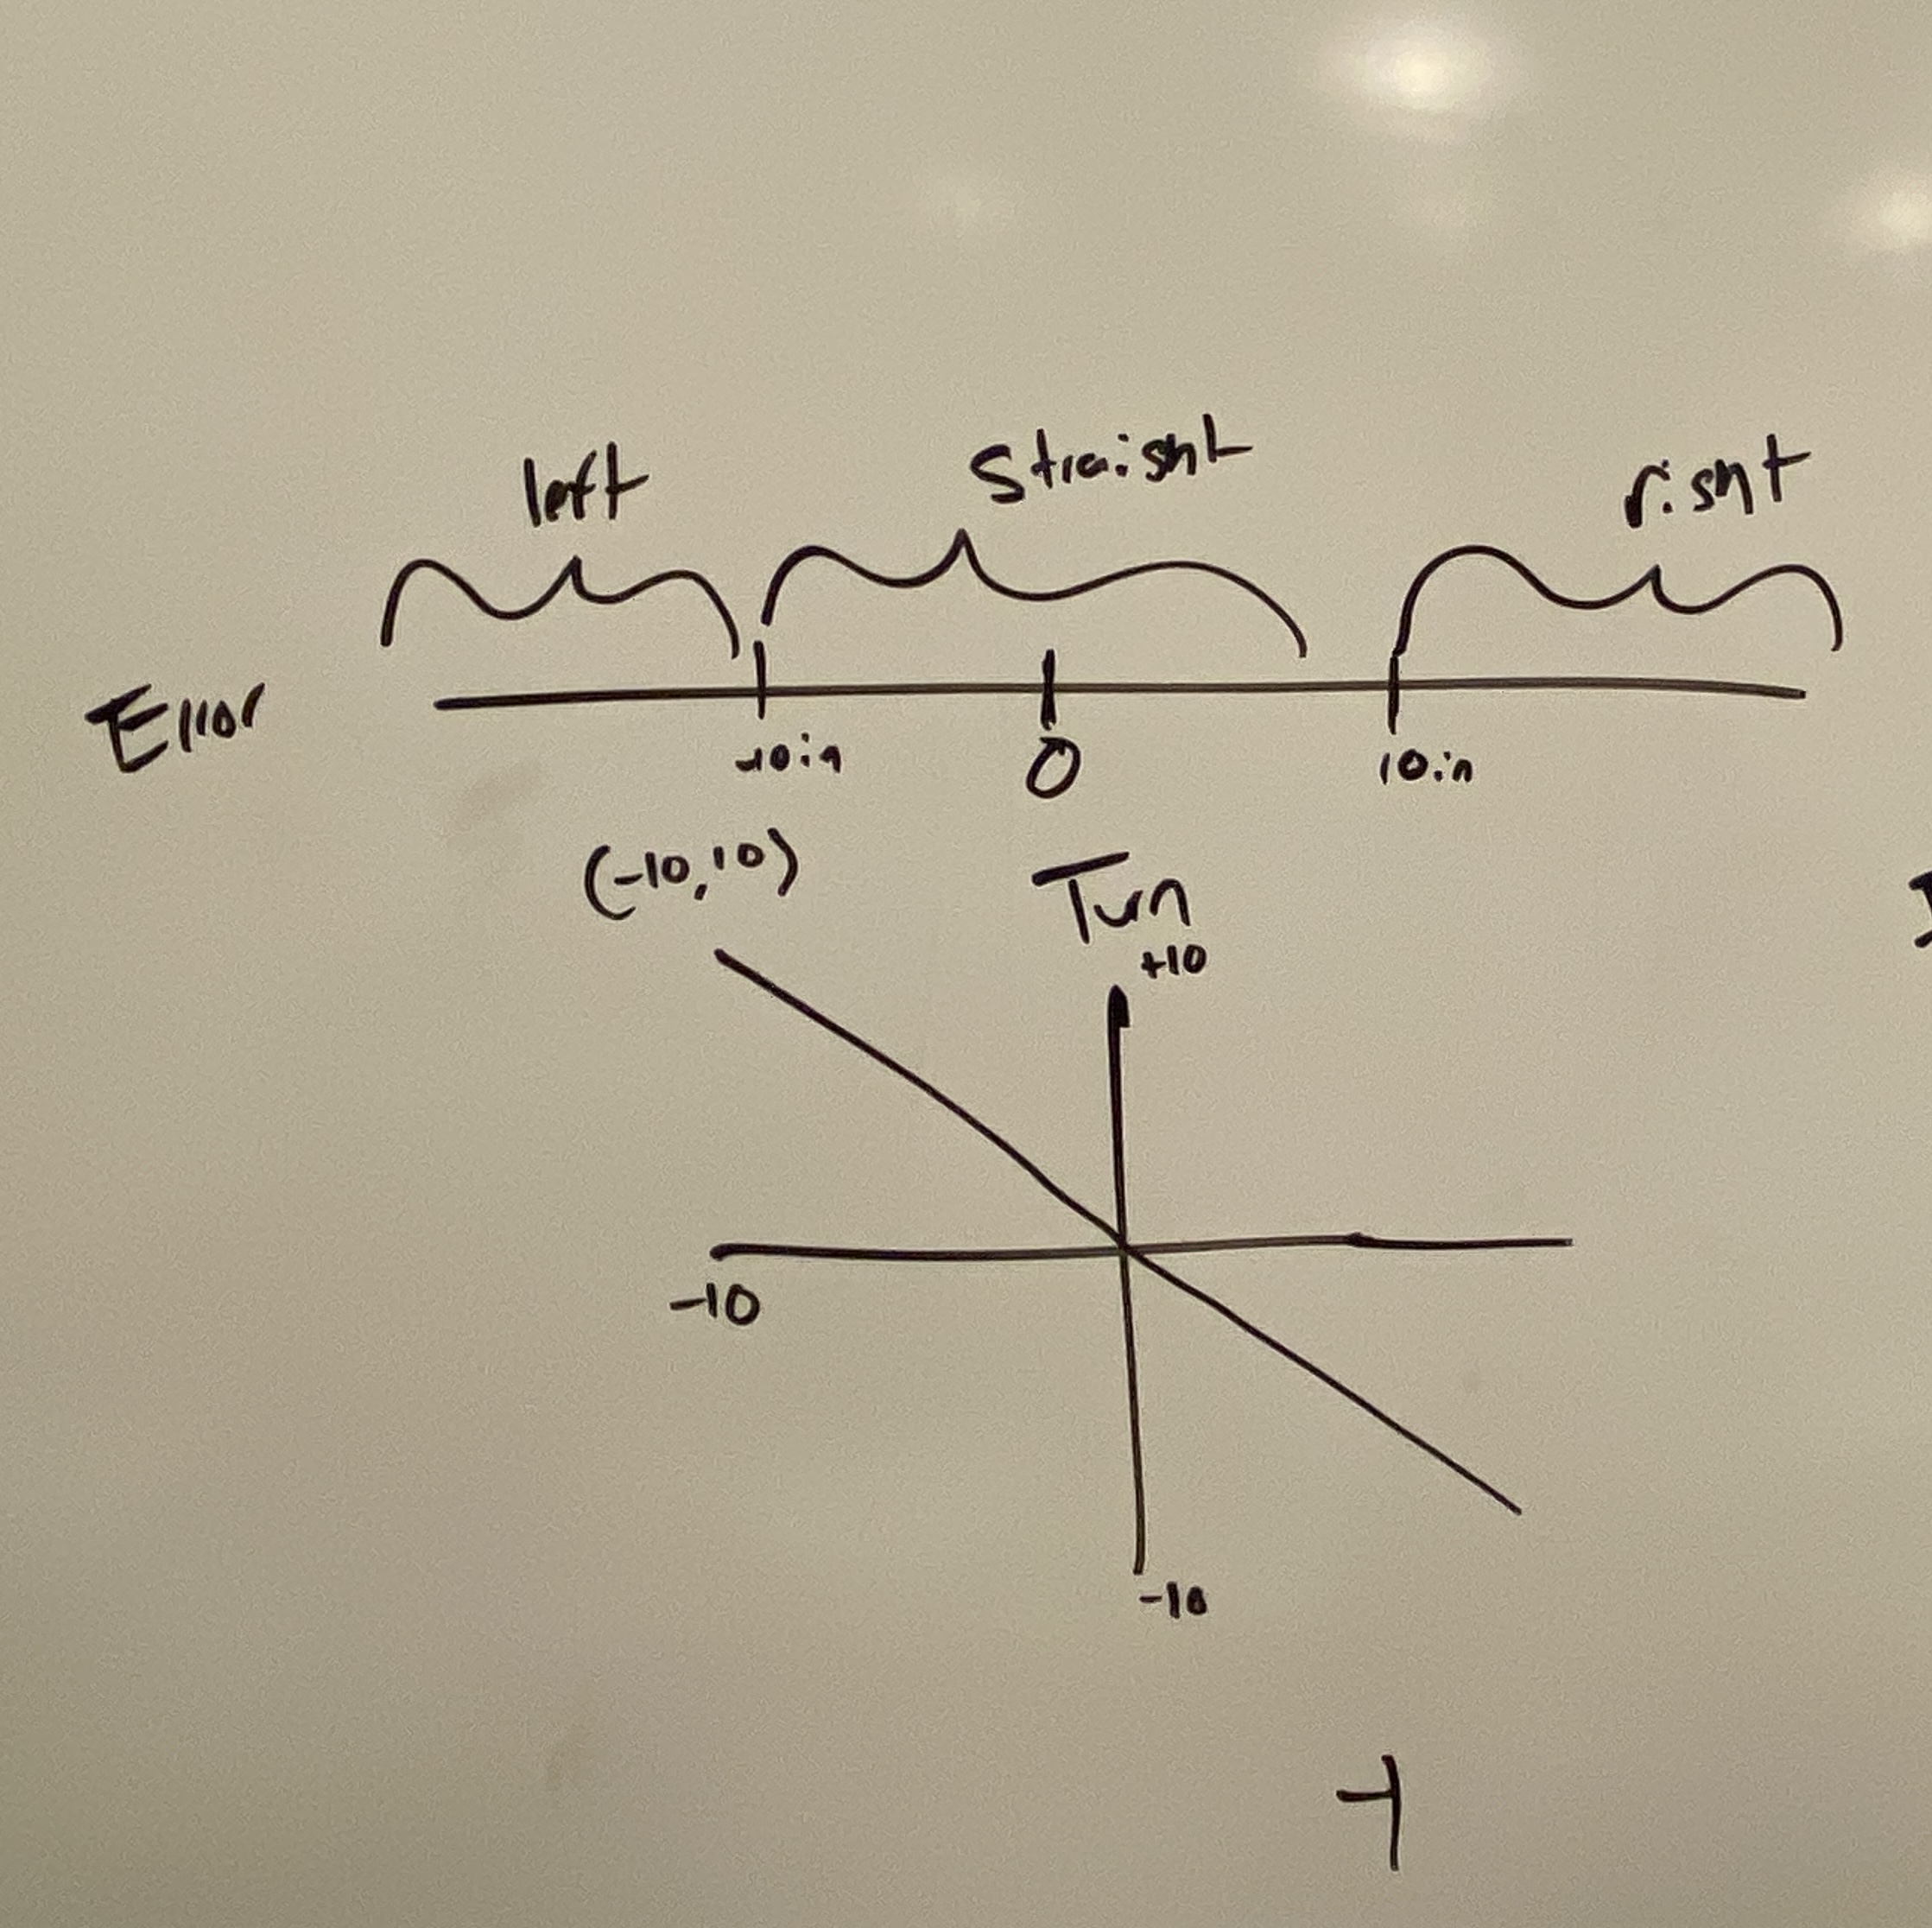 left straight right
Error
-10in 0 10in
(-10,10) Turn
+10
-10
-10
-1